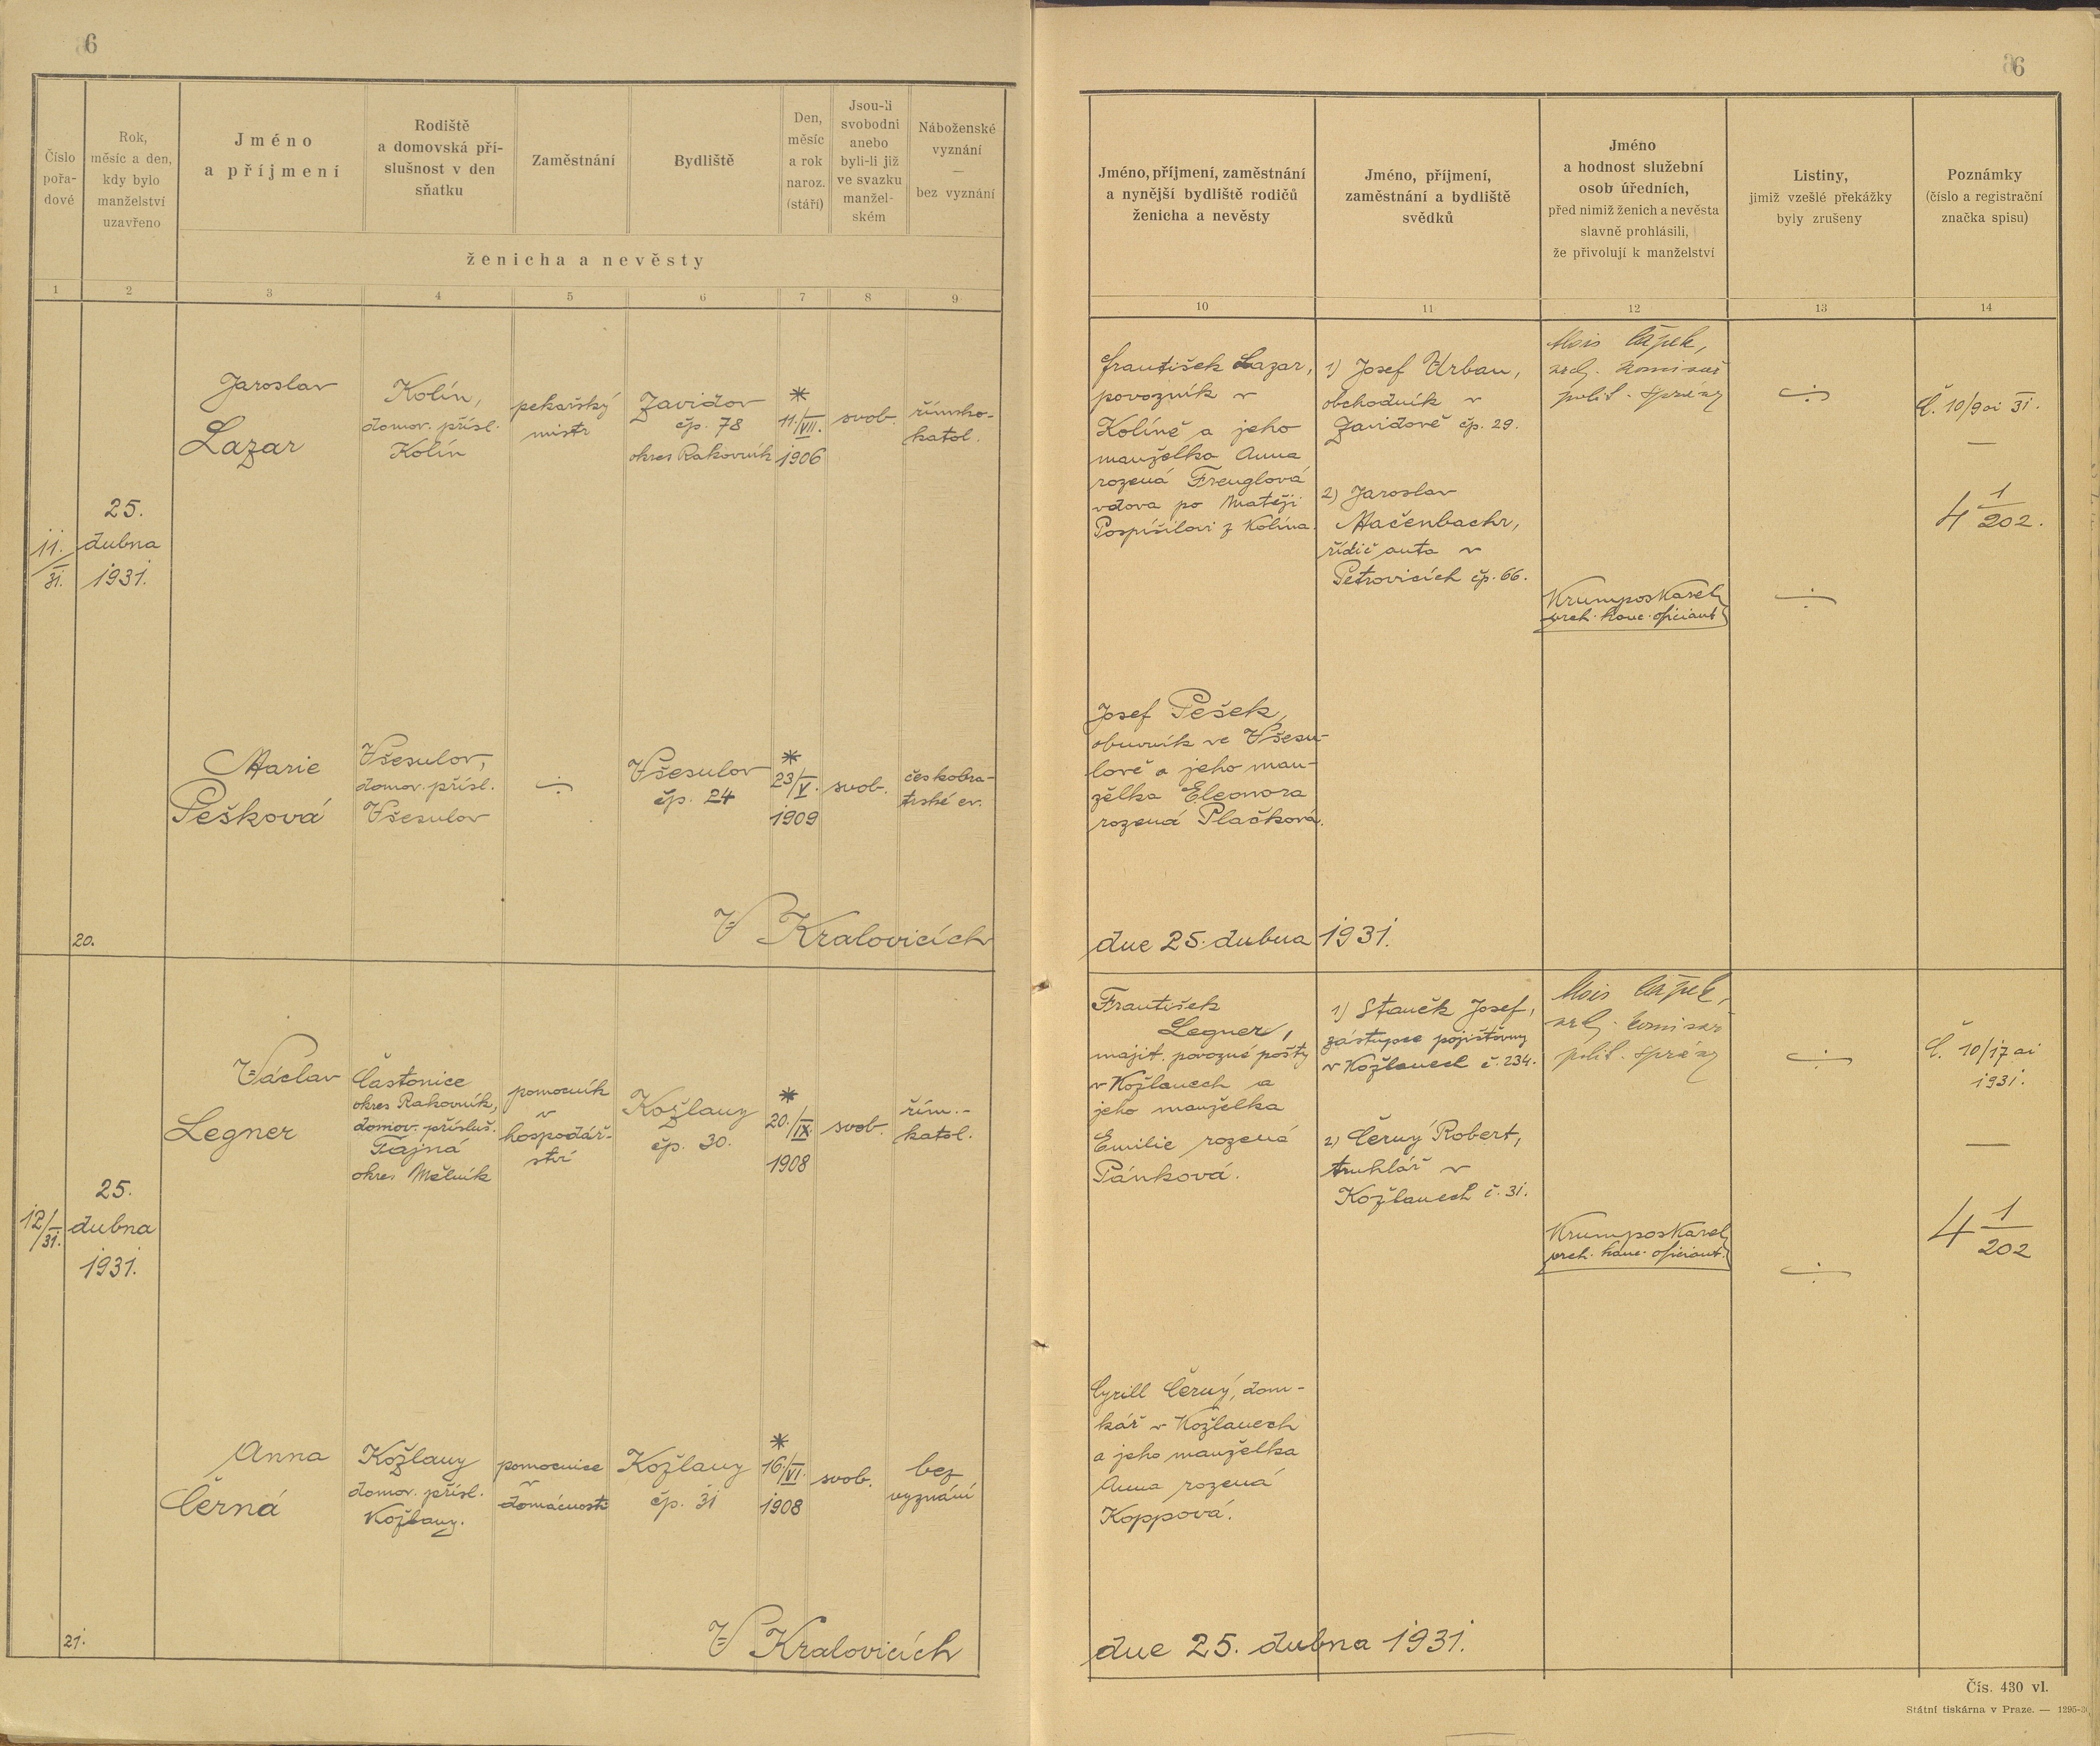 6
Číslo
pořa-
dové
Rok,
měsíc a den,
kdy bylo
manželství
uzavřeno
Jméno
a příjmení
Rodiště
a domovská pří-
slušnost v den
sňatku
Zaměstnání
Bydliště
Den,
měsíc
a rok
naroz.
(stáří)
Jsou-li
svobodni
anebo
byli-li již
ve svazku
manžel-
ském
Náboženské
vyznání
—
bez vyznání
ženicha a nevěsty
1 2 3 4 5 6 7 8 9
11./31.
25.
dubna
1931.
Jaroslav
Lazar
Kolín,
domov. přísl.
Kolín
pekařský
mistr
Zavidov
čp. 78
okres Rakovník
*
11./VII.
1906
svob.
římsko-
katol.
Marie
Pešková
Všesulov,
domov. přísl.
Všesulov
÷
Všesulov
čp. 24
*
23/V.
1909
svob.
českobra-
trské ev.
20.
V Kralovicích
12/31.
25.
dubna
1931.
Václav
Legner
Častonice
okres Rakovník,
domov. přísluš.
Tajná
okres Mělník
pomocník
v
hospodář-
ství
Kožlany
čp. 30.
*
20./IX.
1908
svob.
řím.-
katol.
Anna
Černá
Kožlany
domov. přísl.
Kožlany.
pomocnice
v
domácnosti
Kožlany
čp. 31
*
16./VI.
1908
svob.
bez
vyznání
21.
V Kralovicích
6
Jméno, příjmení, zaměstnání
a nynější bydliště rodičů
ženicha a nevěsty
Jméno, příjmení,
zaměstnání a bydliště
svědků
Jméno
a hodnost služební
osob úředních,
před nimiž ženich a nevěsta
slavně prohlásili,
že přivolují k manželství
Listiny,
jimiž vzešlé překážky
byly zrušeny
Poznámky
(číslo a registrační
značka spisu)
10 11 12 13 14
František Lazar,
povozník v
Kolíně a jeho
manželka Anna
rozená Frenglová
vdova po Matěji
Pospíšilovi z Kolína.
1) Josef Urban,
obchodník v
Zavidově čp. 29.
2) Jaroslav
Mačenbachr,
řidič auta v
Petrovicích čp. 66.
Alois Čápek,
vrch. komisař
polit. správy
Krumpos Karel,
vrch. kanc. oficiant
÷
÷
Č. 10/9 ai 31.
—
4 1/202.
Josef Pešek,
obuvník ve Všesu-
lově a jeho man-
želka Eleonora
rozená Plačková.
dne 25. dubna 1931.
František
Legner,
majit. povozné pošty
v Kožlanech a
jeho manželka
Emilie rozená
Pánková.
1) Staněk Josef,
zástupce pojišťovny
v Kožlanech č. 234.
2) Černý Robert,
truhlář v
Kožlanech č. 31.
Alois Čápek,
vrch. komisař
polit. správy
Krumpos Karel,
vrch. kanc. oficiant.
÷
÷
Č. 10/17 ai
1931.
—
4 1/202
Cyrill Černý, dom-
kář v Kožlanech
a jeho manželka
Anna rozená
Koppová.
dne 25. dubna 1931.
Čís. 430 vl.
Státní tiskárna v Praze. — 1295-3